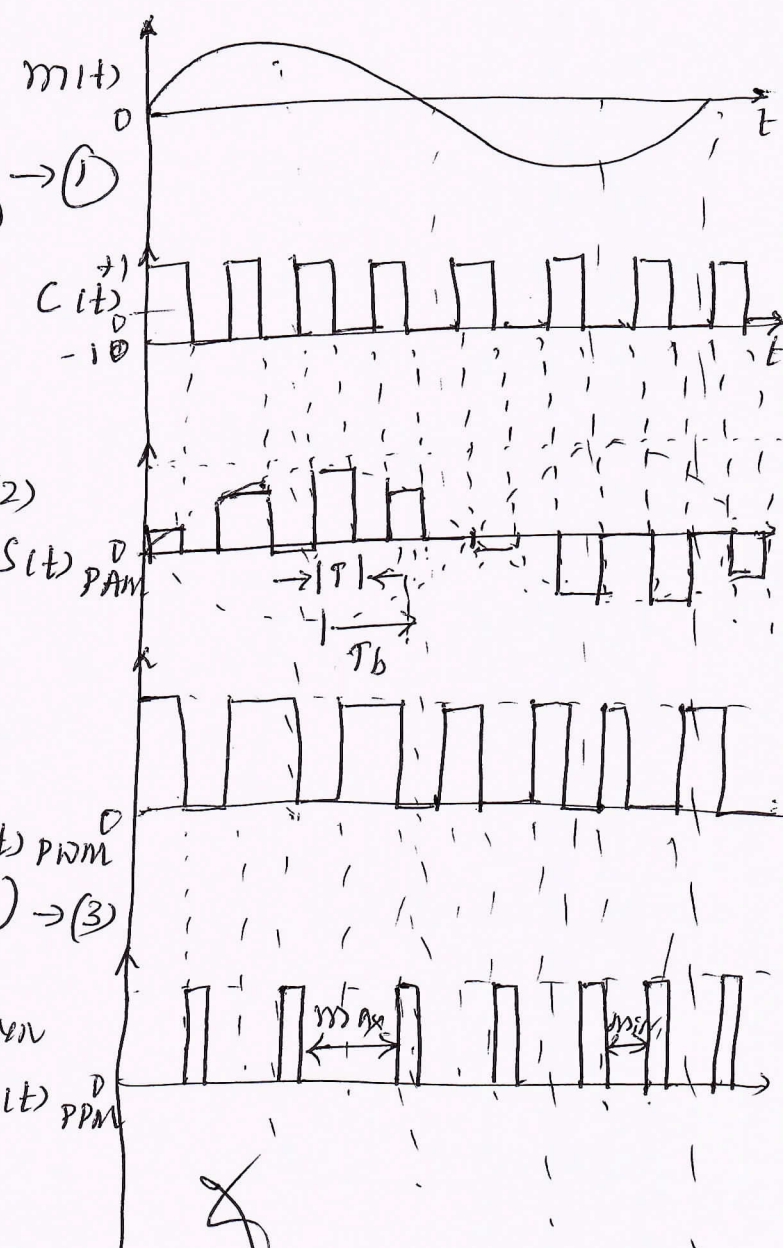 m(t)
0
t
→ ①
+1
C(t)
0
-1
t
2)
S(t)
0
PAM
→|τ|←
Tb
0
t) PWM
) → (3)
max
min
(t)
0
PPM